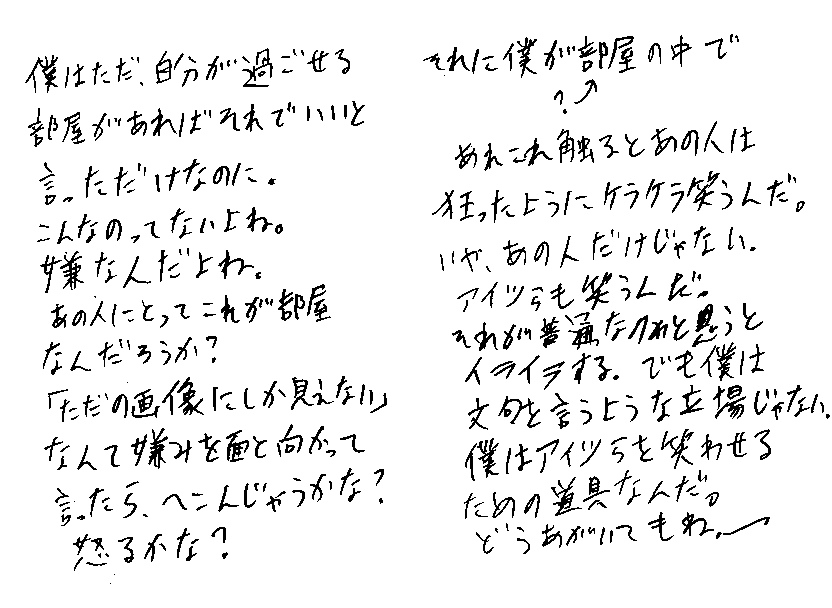 僕はただ、自分が過ごせる
部屋があればそれでいいと
言っただけなのに。
こんなのってないよね。
嫌なんだよね。
あの人にとってこれが部屋
なんだろうか?
「ただの画像にしか見えない」
なんて嫌みを面と向かって
言ったら、へこんじゃうかな?
怒るかな?
それに僕が部屋の中で
?↗
あれこれ触るとあの人は
狂ったようにケラケラ笑うんだ。
いや、あの人だけじゃない。
アイツらも笑うんだ。
それが普通なのかと思うと
イライラする。でも僕は
文句を言うような立場じゃない。
僕はアイツらを笑わせる
ための道具なんだ。
どうあがいてもね。